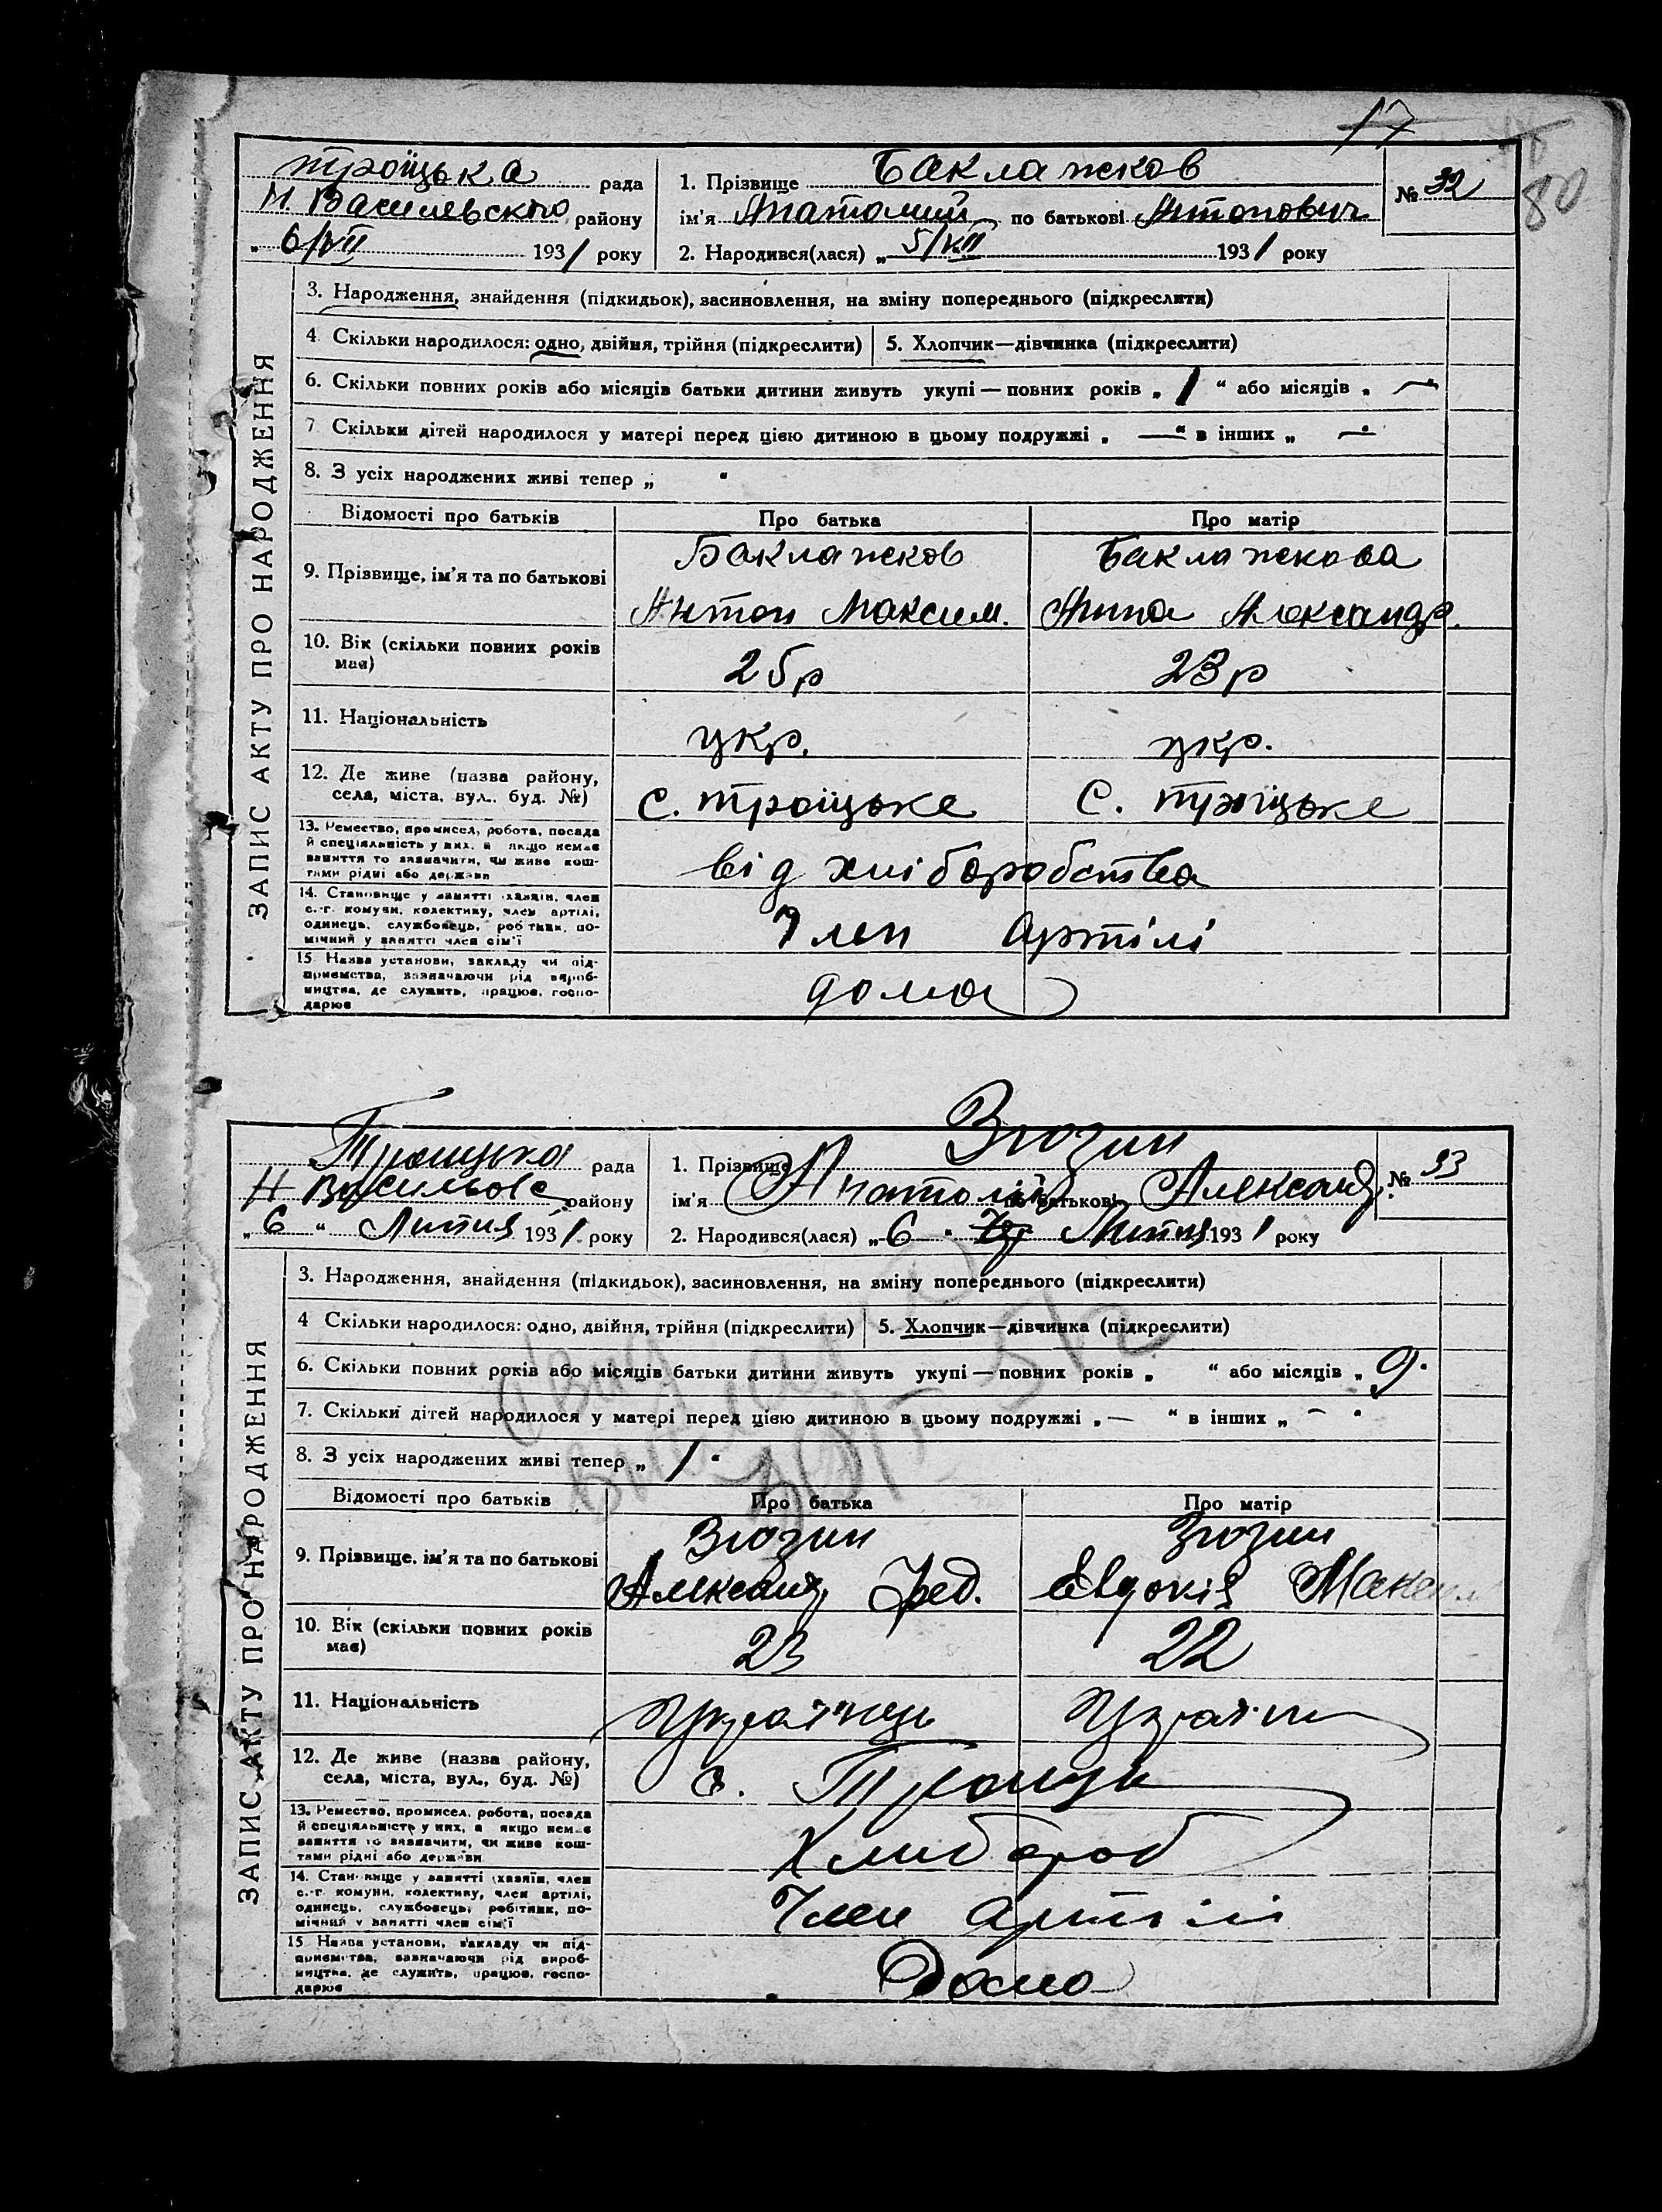 17
80
Троїцька рада
Н. Васильевського району
„ 6/VII 1931 року
1. Прізвище Баклажков
ім'я Анатолий по батькові Антонович
2. Народився(лася) „ 5/VII 1931 року
№ 32
ЗАПИС АКТУ ПРО НАРОДЖЕННЯ
3. Народження, знайдення (підкидьок), засиновлення, на зміну попереднього (підкреслити)
4. Скільки народилося: одно, двійня, трійня (підкреслити) 5. Хлопчик—дівчинка (підкреслити)
6. Скільки повних років або місяців батьки дитини живуть укупі — повних років „ 1 “ або місяців „ —“
7. Скільки дітей народилося у матері перед цією дитиною в цьому подружжі „ —“ в інших „ —“
8. З усіх народжених живі тепер „ “
Відомості про батьків Про батька Про матір
9. Прізвище, ім'я та по батькові
Баклажков Баклажкова
Антон Максим. Анна Александр.
10. Вік (скільки повних років має) 25р 23р
11. Національність укр. укр.
12. Де живе (назва району, села, міста, вул., буд. №) с. Троїцьке с. Троїцьке
13. Ремество, промисел, робота, посада
й спеціяльність у них, а якщо немає
заняття то зазначити, чи живе кош-
тами рідні або держави
від хліборобства
14. Становище у занятті (хазяїн, член
с.-г. комуни, колективу, член артілі,
одинець, службовець, робітник, по-
мічний у занятті член сім'ї
Член артілі
15 Назва установи, закладу чи під-
приємства, зазначаючи рід вироб-
ництва, де служить, працює, госпо-
дарює
дома
Троицька рада
Н Васильовс району
„ 6 “ Липня 1931 року
1. Прізвище Зюзин
ім'я Анатолій по батькові Александ.
2. Народився(лася) „ 6 “ Липня 1931 року
№ 33
ЗАПИС АКТУ ПРО НАРОДЖЕННЯ
3. Народження, знайдення (підкидьок), засиновлення, на зміну попереднього (підкреслити)
4 Скільки народилося: одно, двійня, трійня (підкреслити) 5. Хлопчик—дівчинка (підкреслити)
6. Скільки повних років або місяців батьки дитини живуть укупі — повних років „ “ або місяців „ 9.
7. Скільки дітей народилося у матері перед цією дитиною в цьому подружжі „ — “ в інших „ — “
8. З усіх народжених живі тепер „ 1 “
Відомості про батьків Про батька Про матір
9. Прізвище, ім'я та по батькові
Зюзин Зюзин
Александ Фед. Євдокія Максим
10. Вік (скільки повних років має) 23 22
11. Національність Українець Українк
12. Де живе (назва району, села, міста, вул., буд. №) с. Троицьк
13. Ремество, промисел, робота, посада
й спеціяльність у них, а якщо немає
заняття то зазначити, чи живе кош-
тами рідні або держави
Хлибороб
14. Становище у занятті (хазяїн, член
с.-г. комуни, колективу, член артілі,
одинець, службовець, робітник, по-
мічний у занятті член сім'ї
Член артілі
15 Назва установи, закладу чи під-
приємства, зазначаючи рід вироб-
ництва, де служить, працює, госпо-
дарює
Дома